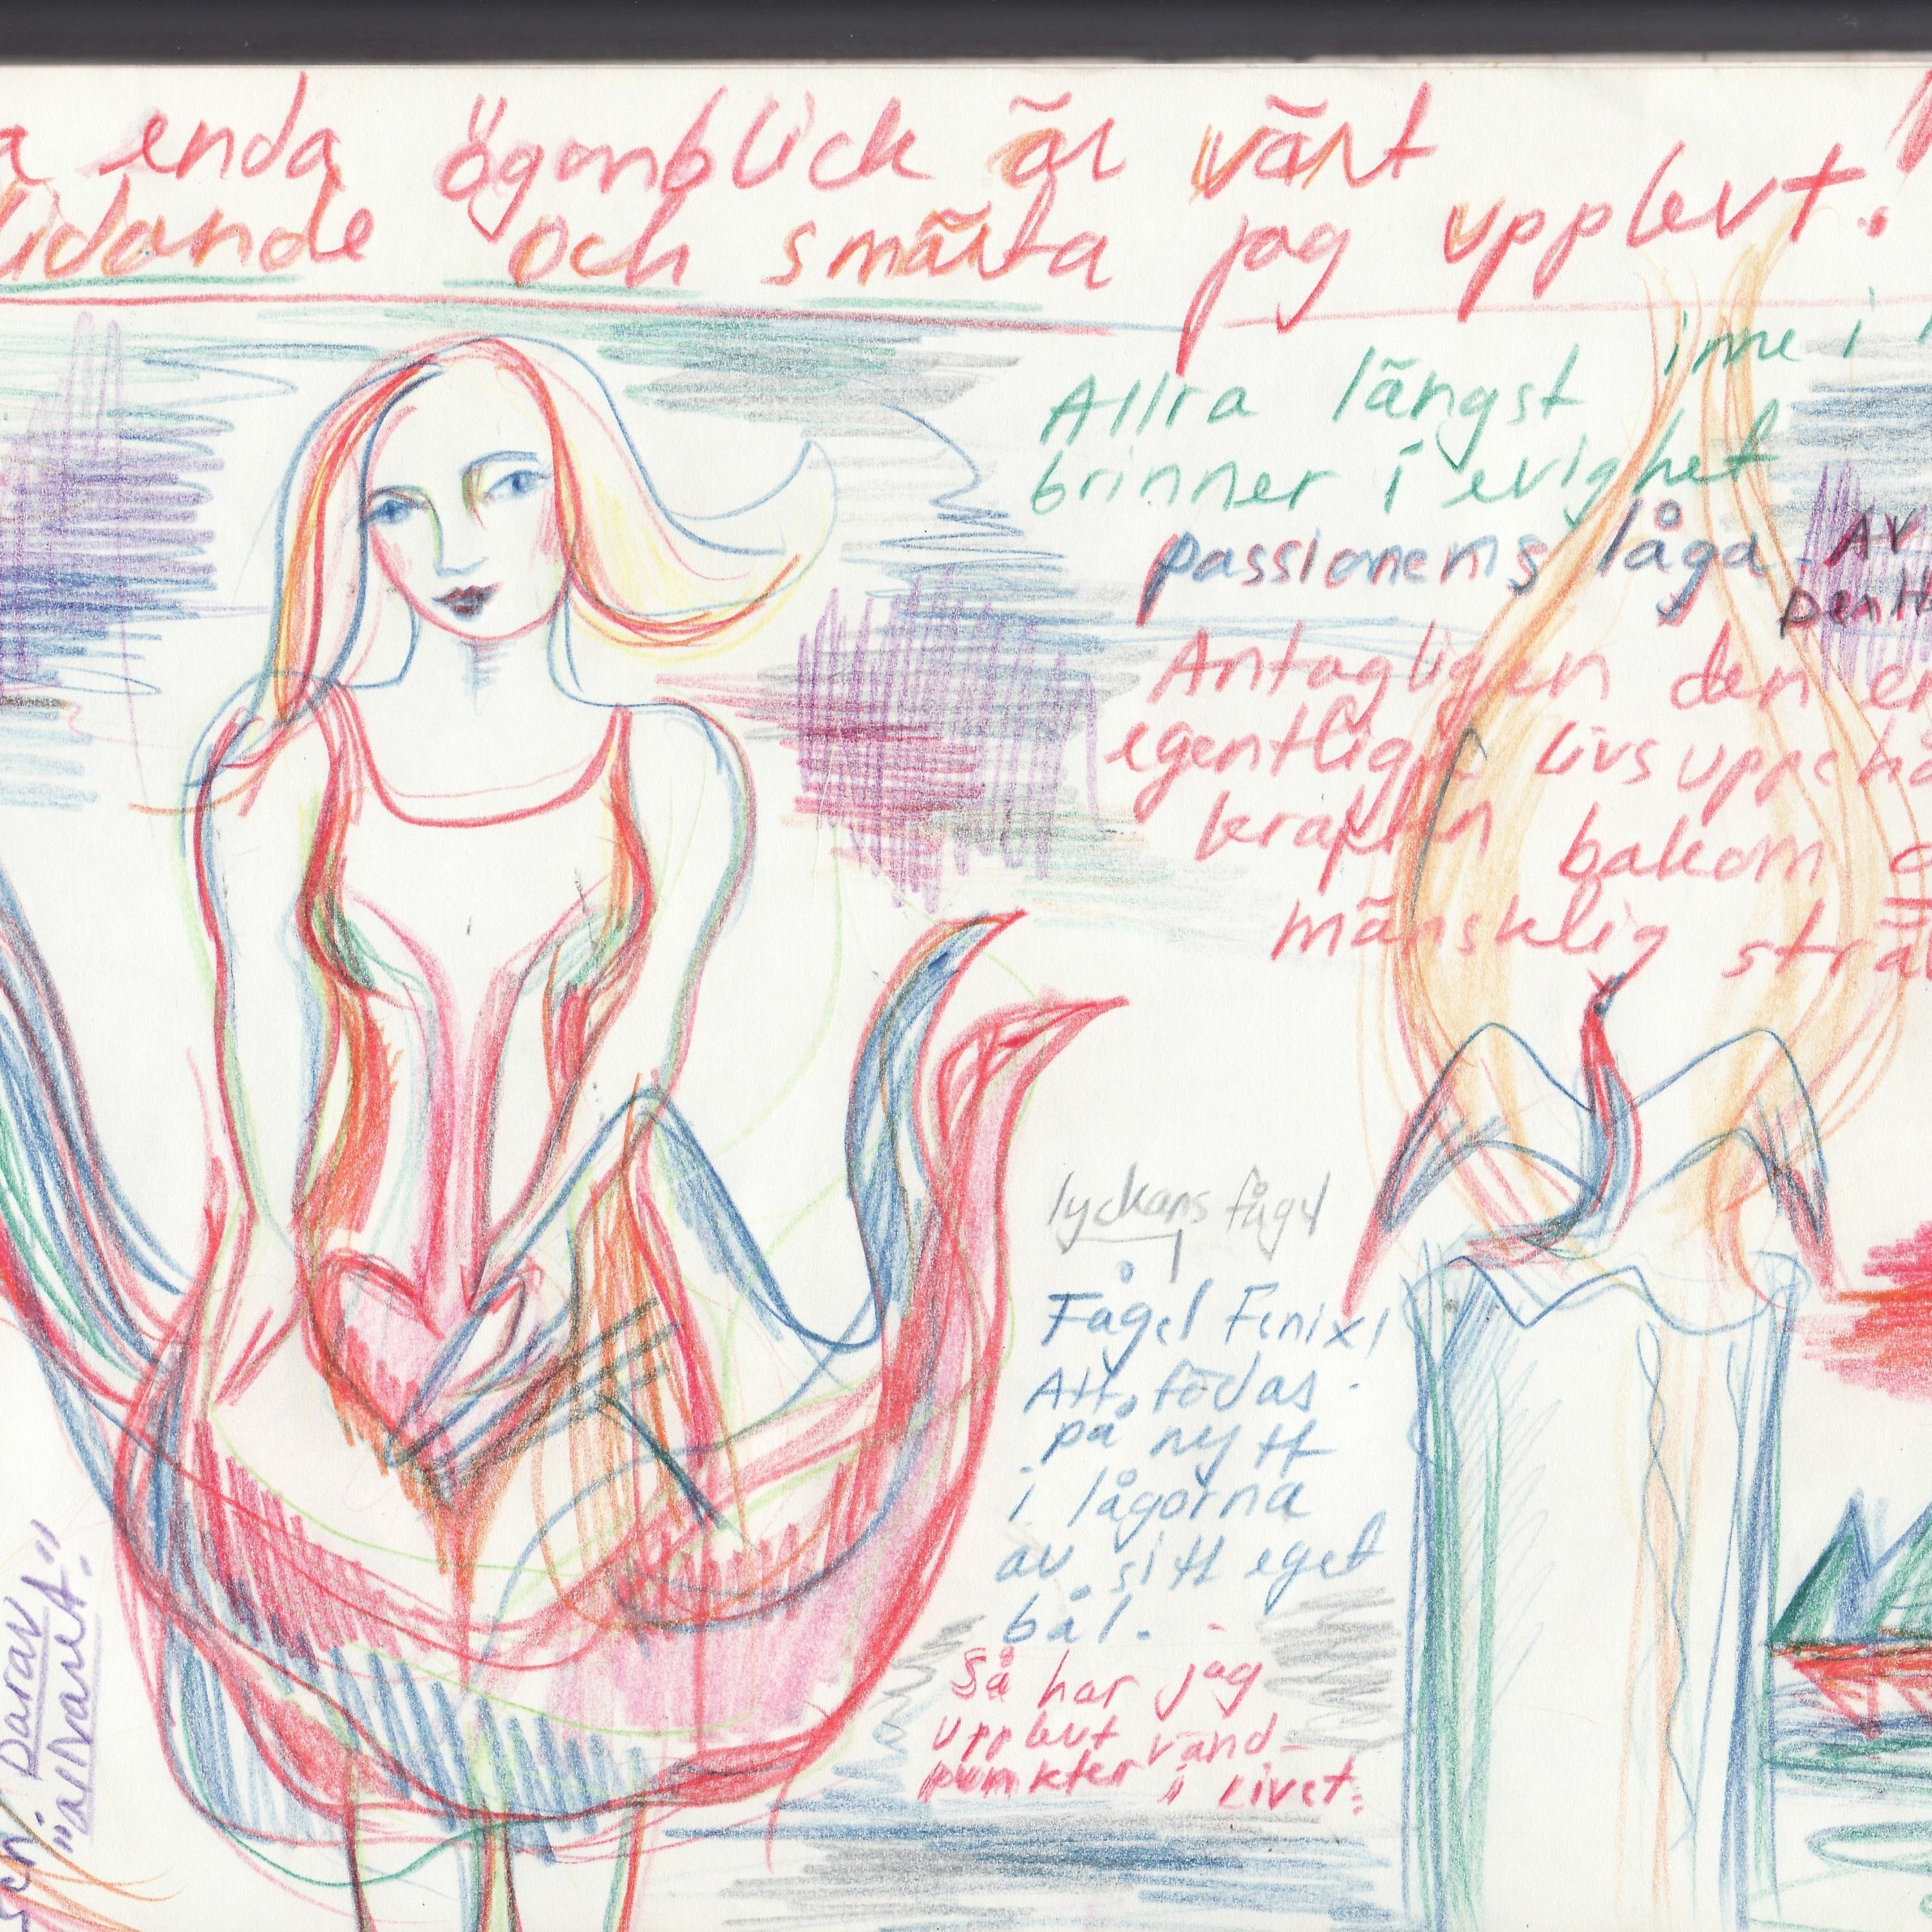 a enda ögonblick är värt
lidande och smärta jag upplevt.
Allra längst inne i
brinner i evighet
passionens låga. Av
Antagligen den en
egentliga livsuppehå
kraften bakom
mänsklig strä
lyckans fågel
Fågel Fenix!
Att födas
på nytt
i lågorna
av sitt eget
bål.
Så har jag
upplevt vänd-
punkter i livet.
Darav
"allvaret."